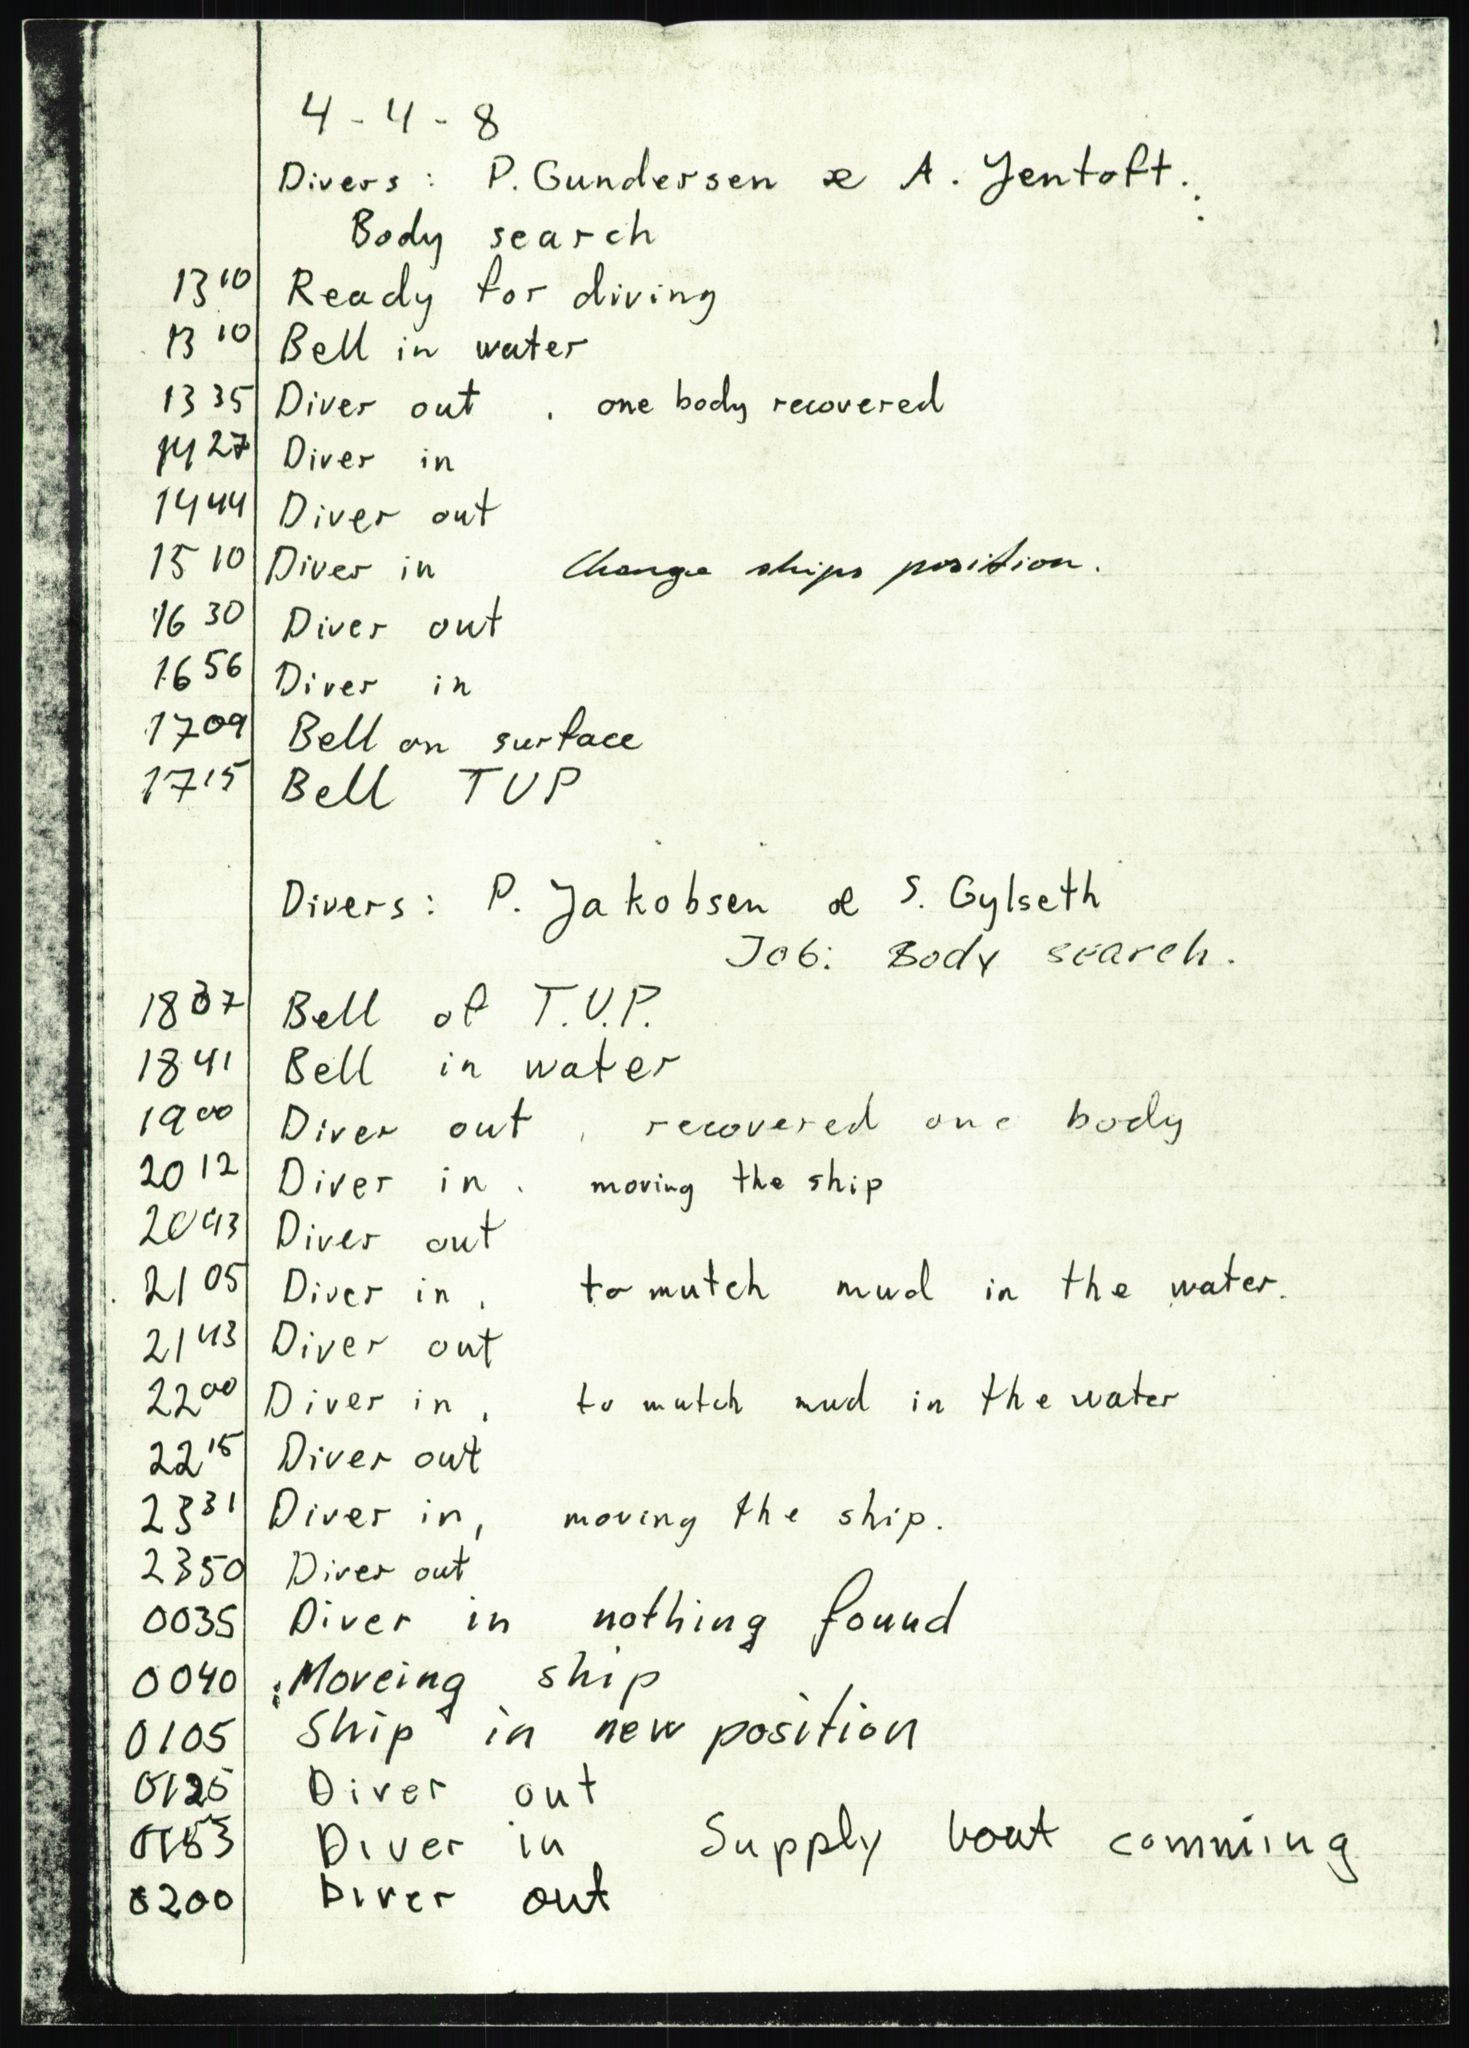 4-4-8
Divers: P. Gundersen & A. Jentoft.
Body search
13 10 Ready for diving
13 10 Bell in water
13 35 Diver out , one body recovered
14 27 Diver in
14 44 Diver out
15 10 Diver in Change ships position.
16 30 Diver out
16 56 Diver in
17 09 Bell on surface
17 15 Bell TUP
Divers: P. Jakobsen & S. Gylseth
Job: Body search.
18 37 Bell of T.U.P.
18 41 Bell in water
19 00 Diver out , recovered one body
20 12 Diver in , moving the ship
20 43 Diver out
21 05 Diver in , to mutch mud in the water.
21 43 Diver out
22 00 Diver in , to mutch mud in the water
22 15 Diver out
23 31 Diver in , moving the ship.
23 50 Diver out
0035 Diver in nothing found
0040 Moveing ship
0105 Ship in new position
0125 Diver out
Diver in Supply boat comming
0200 Diver out